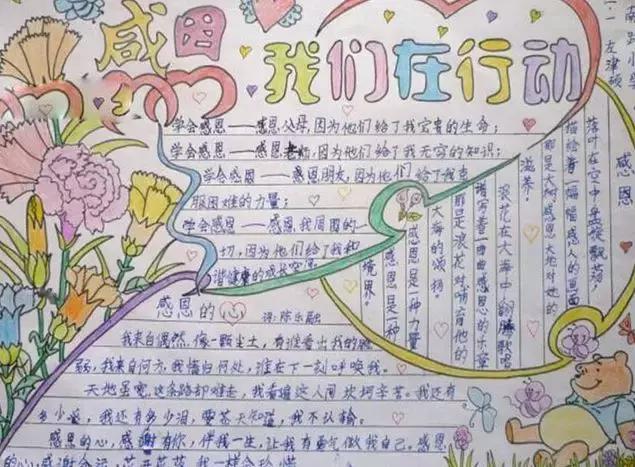 感恩
我们在行动
学会感恩——感恩父母,因为他们给了我宝贵的生命;
学会感恩——感恩老师,因为他们给了我无穷的知识;
学会感恩——感恩朋友,因为他们给了我克
服困难的力量;
学会感恩——感恩我周围的一
切,因为他们给了我和
谐健康的成长空间
感恩
落叶在空中盘旋飘落,
描绘着一幅幅感人的画面
那是大树感恩大地对她的
滋养!
浪花在大海中翻腾歌唱
谱写着一曲曲感恩的乐章
那是浪花对哺育他的
大海的颂扬。
感恩是一种力量
感恩是一种
境界。
感恩的心
词:陈乐融
我来自偶然,像一颗尘土,有谁看出我的脆
弱,我来自何方,我情归何处,谁在下一刻呼唤我。
天地虽宽,这条路却难走,我看遍这人间坎坷辛苦。我还有
多少爱,我还有多少泪,要苍天知道,我不认输。
感恩的心,感谢有你,伴我一生,让我有勇气做我自己。感恩
的心,感谢命运,花开花落,我一样会珍惜